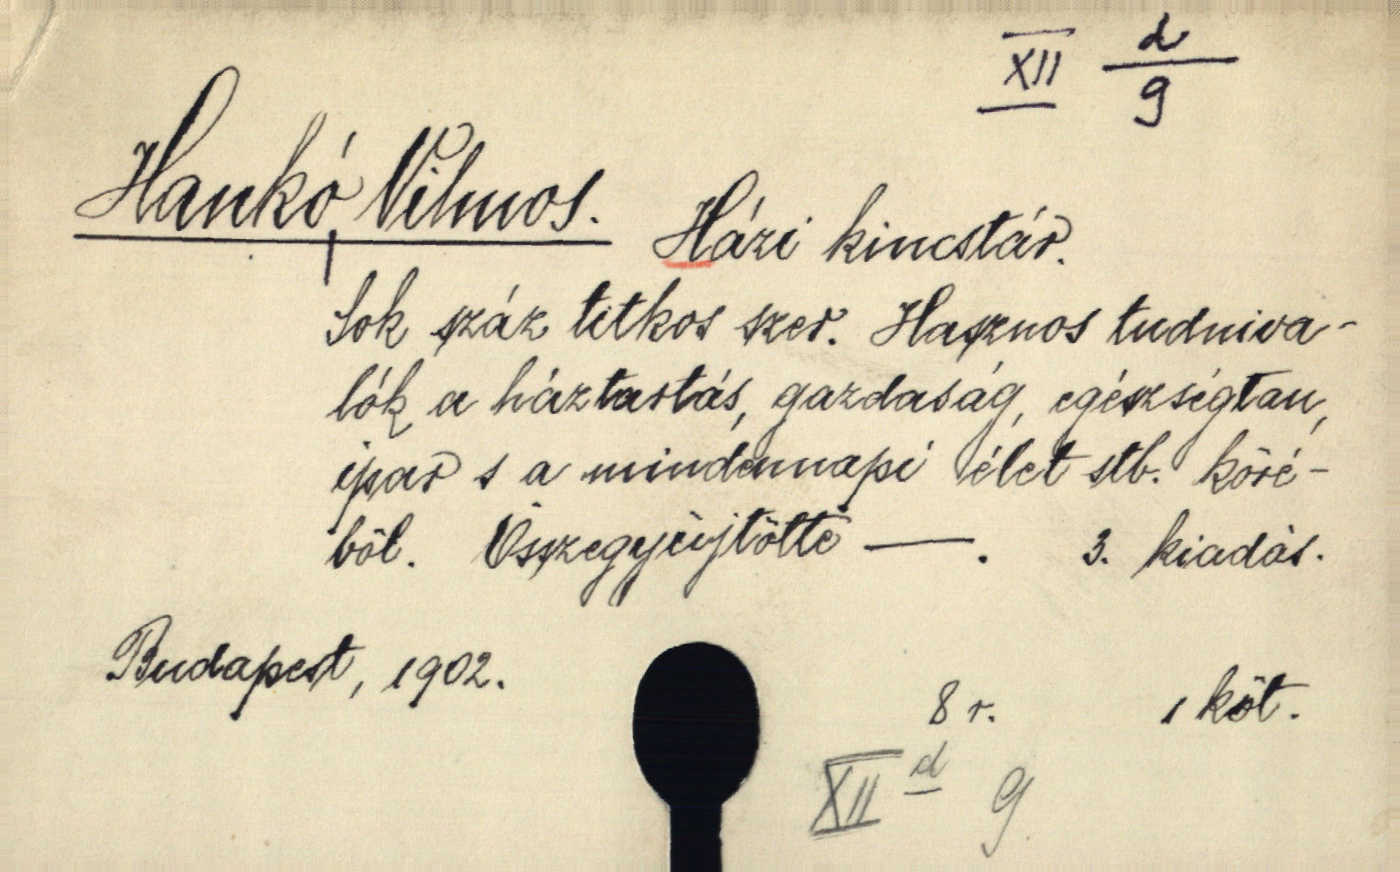 XII d/9
Hankó Vilmos. Házi kincstár.
Sok száz titkos szer. Hasznos tudniva-
lók a háztartás, gazdaság, egészségtan,
ipar s a mindennapi élet stb. köré-
ből. Összegyűjtötte —. 3. kiadás.
Budapest, 1902.
8 r. 1 köt.
XII d 9